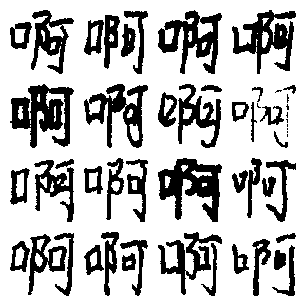 啊啊啊啊
啊啊啊啊
啊啊啊啊
啊啊啊啊